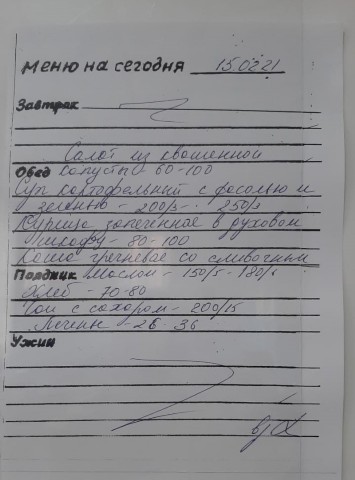 Меню на сегодня 15.02.21
Завтрак
Салат из квашенной
Обед капусты - 60-100
Суп картофельный с фасолью и
зеленью - 200/5 - 250/5
Курица запеченное в духовом
шкафу - 80 - 100
Каша гречневая со сливочным
Полдник маслом - 150/5 - 180/5
Хлеб - 70-80
Чай с сахаром - 200/15
Печенье - 26 - 36
Ужин